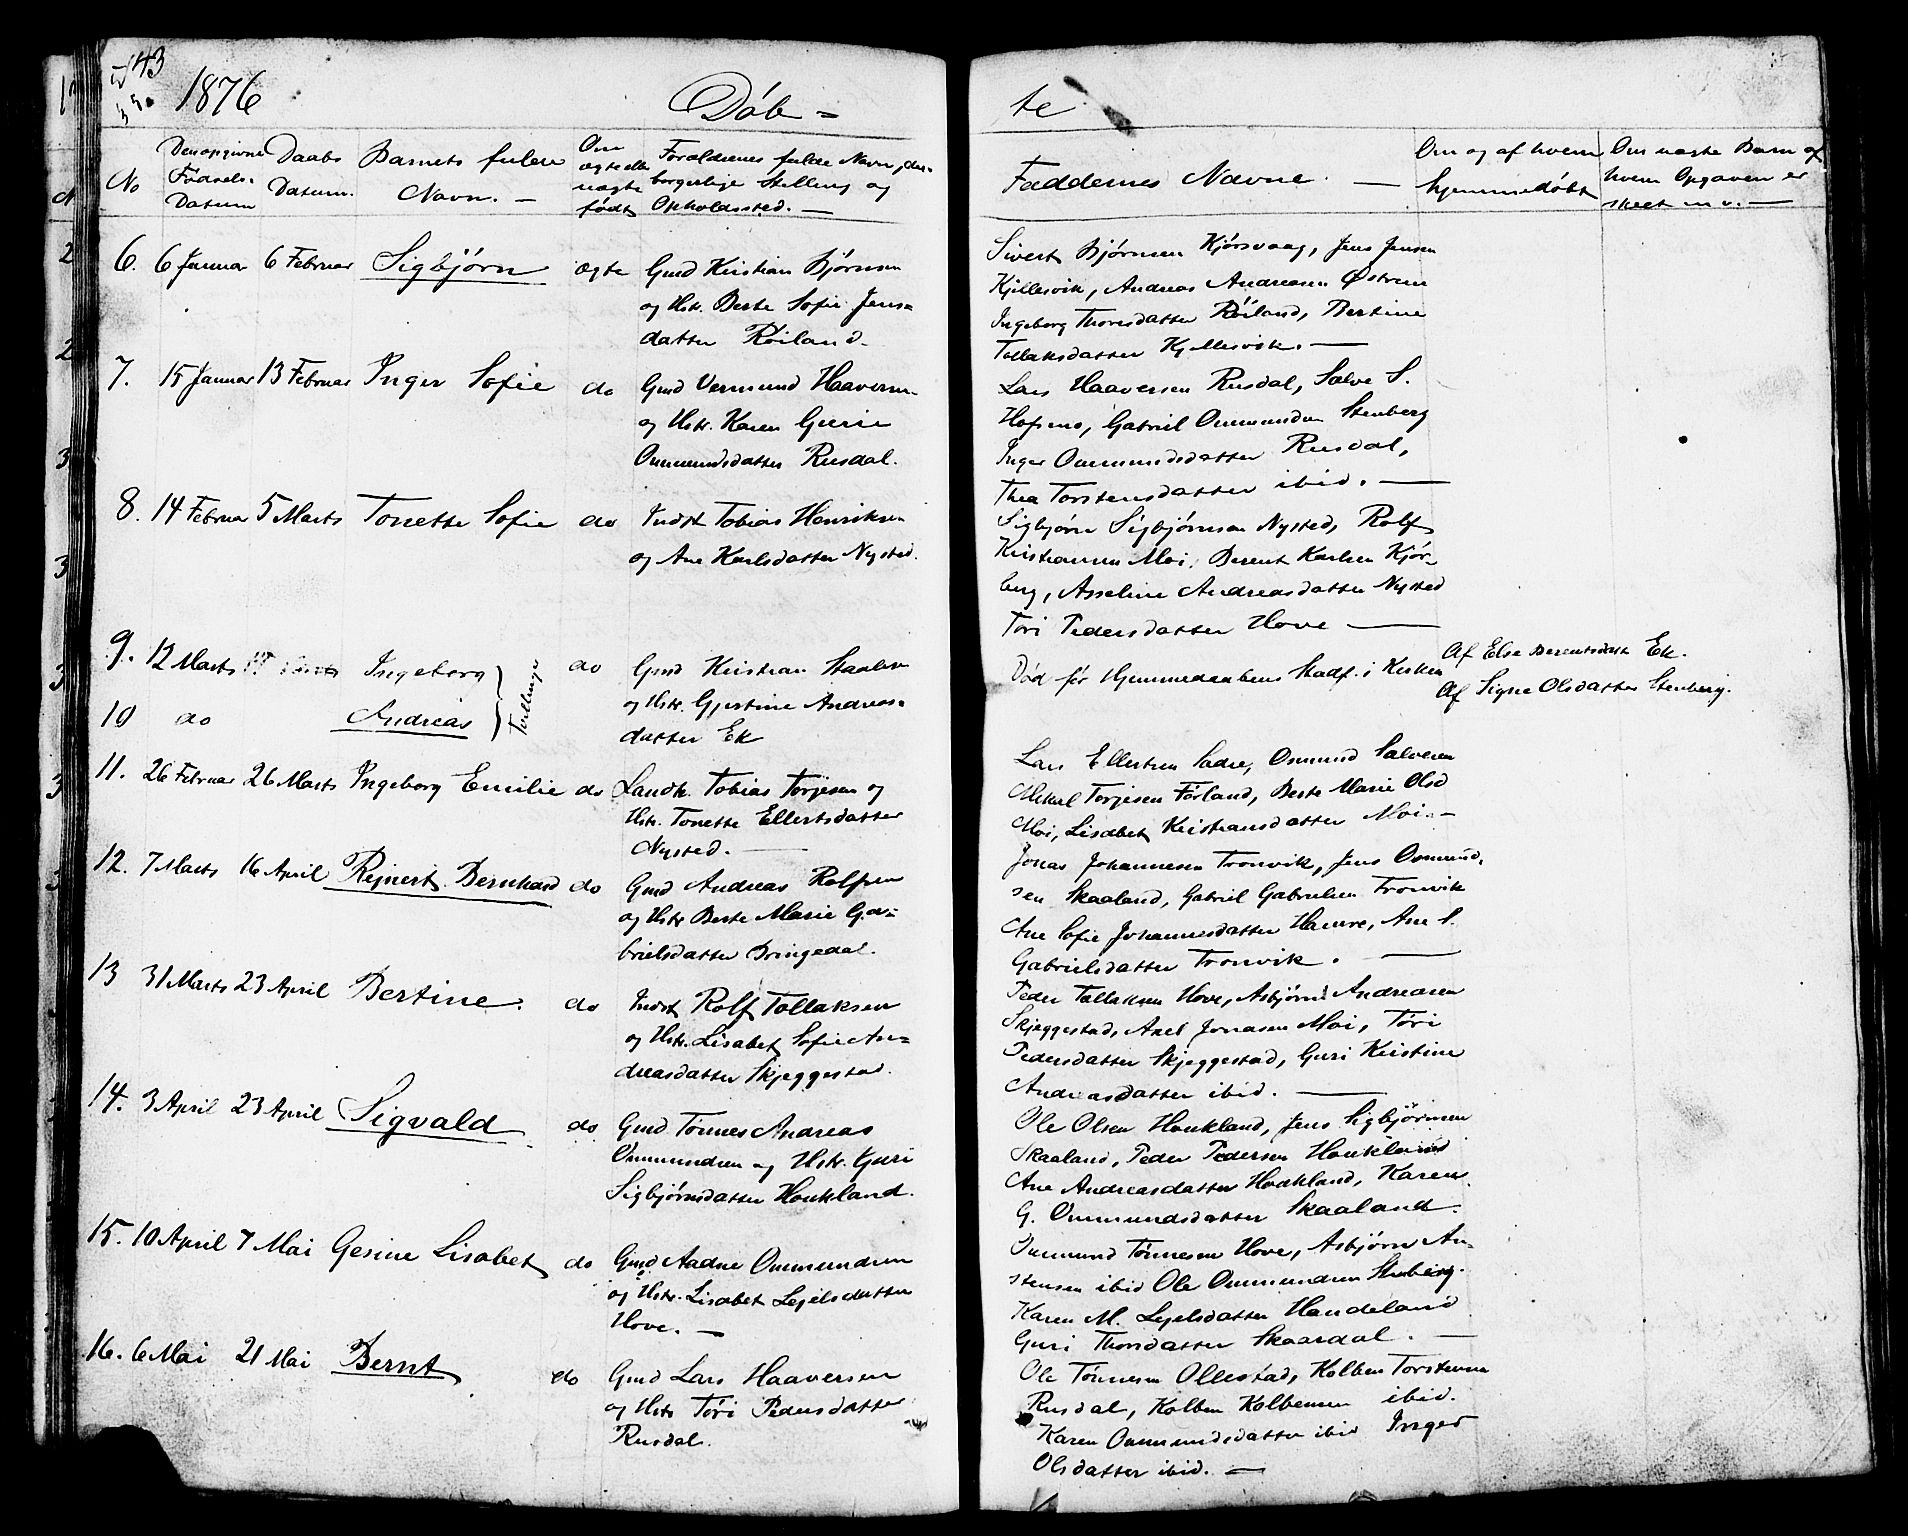 43
1876 Døb = te
No
Den opgivne Fødsels- Datum
Daabs Datum.
Barnets fulde Navn. —
Om ægte elle uægte født
Forældrenes fulde Navn, des- borgerlige Stilling og Opholdssted. —
Faddernes Navne. —
Om og af hvem hjemmedøbt
Om uægte Barn af hvem Opgaven er skeet m. v. —
6. 6 Januar 6 Februar Sigbjørn ægte
Gmd Kristian Bjørnsen
og Hstr. Berte Sofie Jens-
datter Røiland.
Sivert Bjørnsen Kjørsvaag, Jens Jensen
Kjellesvik, Andreas Andreasen Østrem
Ingeborg Thoresdatter Røiland, Bertine
Tollaksdatter Kjellesvik. —
7. 15 Januar 13 Februar Inger Sofie do
Gmd Vermund Haaversen
og Hstr. Karen Gurie
Ommundsdatter Rusdal.
Lars Haaversen Rusdal, Salve S.
Gabriel Ommundsen Stenberg
Inger Ommundsdatter Rusdal,
Thea Torstensdatter ibid. —
8. 14 Februar 5 Marts Tonette Sofie do
Indst Tobias Henriksen
og Ane Karlsdatter Nysted.
Sigbjørn Sigbjørnsen Nysted, Rolf
Kristiansen Moi, Berent Karlsen Kjør-
berg, Asseline Andreasdatter Nysted
Tøri Pedersdatter Hove —
9. 12 Marts Ingeborg do
10 do Andreas
Tvillinger
Gmd Kristian Staalesen
og Hstr. Gjertine Andreas-
datter Ek
Død før Hjemmedaabens Stadf. i Kirken
Af Else Berentsdatt Ek.
Af Signe Olsdatter Stenberg.
11. 26 Februar 26 Marts Ingeborg Emilie do
Landh. Tobias Torjesen og
Hstr. Tonette Ellertsdatter
Nysted. —
Lars Ellertsen Sadre, Osmund Salvesen
Mikal Torjesen Førland, Berte Marie Olsd
Moi, Lisabet Kristiansdatter Moi. —
12. 7 Marts 16 April Rejnert Bernhard do
Gmd Andreas Rolfsen
og Hstr Berte Marie Ga-
brielsdatter Bringedal.
Jonas Johannesen Tronvik, Jens Osmund-
sen Skaaland, Gabriel Gabrielsen Tronvik
Ane Sofie Johannesdatter Hamre, Ane S.
Gabrielsdatter Tronvik. —
13 31 Marts 23 April Bertine. do
Indst Rolf Tollaksen
og Hstr. Lisabet Sofie An-
dreasdatter Skjeggestad.
Peder Tollaksen Hove, Asbjørn Andreasen
Skjeggestad, Axel Jonasen Moi, Tøri
Pedersdatter Skjeggestad, Guri Kristine
Andreasdatter ibid. —
14. 3 April 23 April Sigvald do
Gmd. Tønnes Andreas
Ommundsen og Hstr. Guri
Sigbjørnsdatter Houkland.
Ole Olsen Houkland, Jens Sigbjørnsen
Skaaland, Peder Pedersen Houkland
Ane Andreasdatter Houkland, Karen
G. Ommundsdatter Skaaland.
15. 10 April 7 Mai Gesine Lisabet do
Gmd Aadne Ommundsen
og Hstr. Lisabet Lejelsdatter
Hove. —
Ommund Tønnesen Hove, Asbjørn An-
stensen ibid Ole Ommundsen Stenberg.
Karen M. Lejelsdatter Handeland
Guri Thorsdatter Skaardal. —
16. 6 Mai 21 Mai Bernt do
Gmd Lars Haaversen
og Hstr Tøri Pedersdatter
Rusdal.
Ole Tønnesen Ollestad, Kolben Torstensen
Rusdal, Kolben Kolbensen ibid.
Karen Ommundsdatter ibid Inger
Olsdatter ibid. —